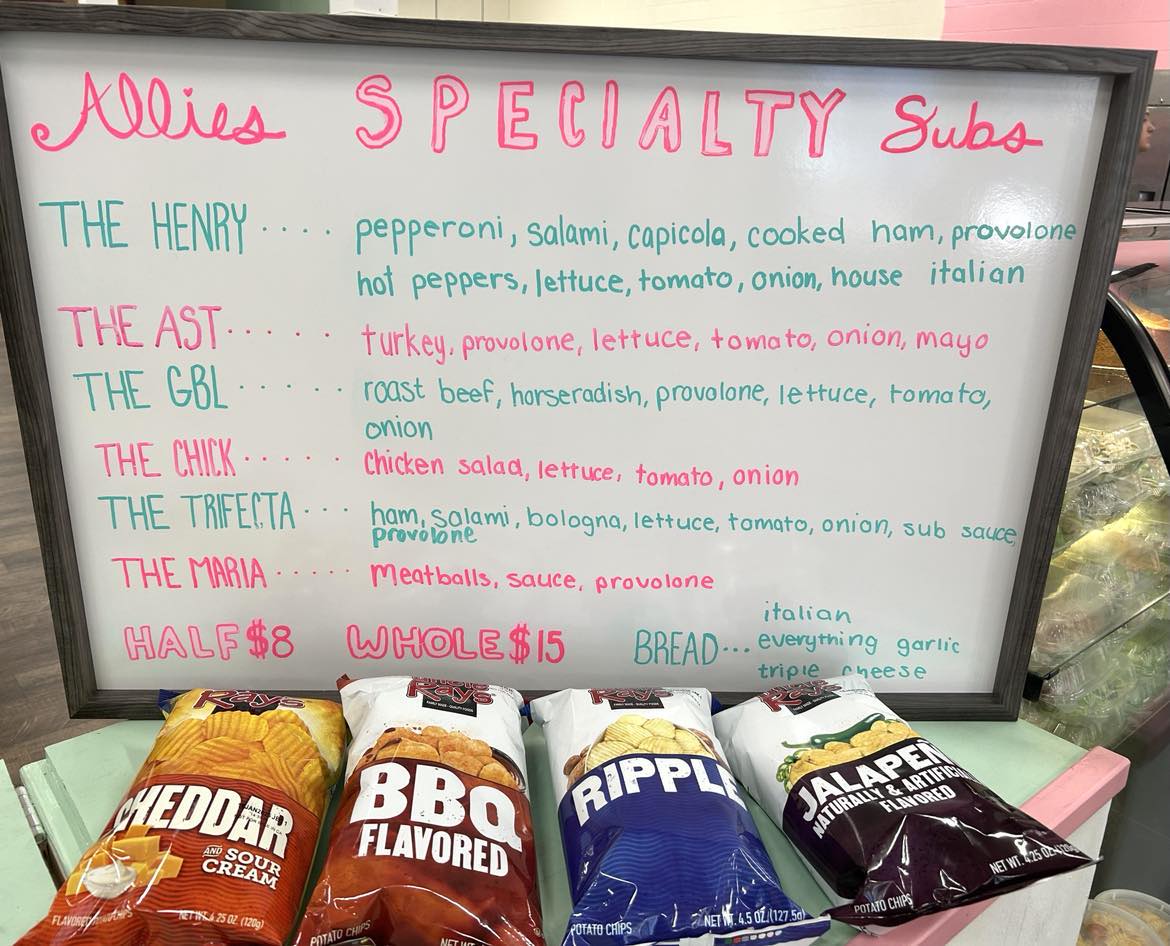 Allies SPECIALTY Subs
THE HENRY .... pepperoni, salami, capicola, cooked ham, provolone
hot peppers, lettuce, tomato, onion, house italian
THE AST ..... turkey, provolone, lettuce, tomato, onion, mayo
THE GBL ..... roast beef, horseradish, provolone, lettuce, tomato,
onion
THE CHICK ..... chicken salad, lettuce, tomato, onion
THE TRIFECTA ... ham, salami, bologna, lettuce, tomato, onion, sub sauce,
provolone
THE MARIA ..... Meatballs, sauce, provolone
HALF $8 WHOLE $15 BREAD...
italian
everything garlic
triple cheese
Rays
CHEDDAR
AND SOUR
CREAM
NET WT. 4.25 OZ. (120g)
Rays
BBQ
FLAVORED
POTATO CHIPS
NET WT.
Rays
RIPPLE
POTATO CHIPS
NET WT. 4.5 OZ. (127.5g)
Rays
JALAPEN
NATURALLY & ARTIFIC
FLAVORED
POTATO CHIPS
NET WT. 4.25 OZ.